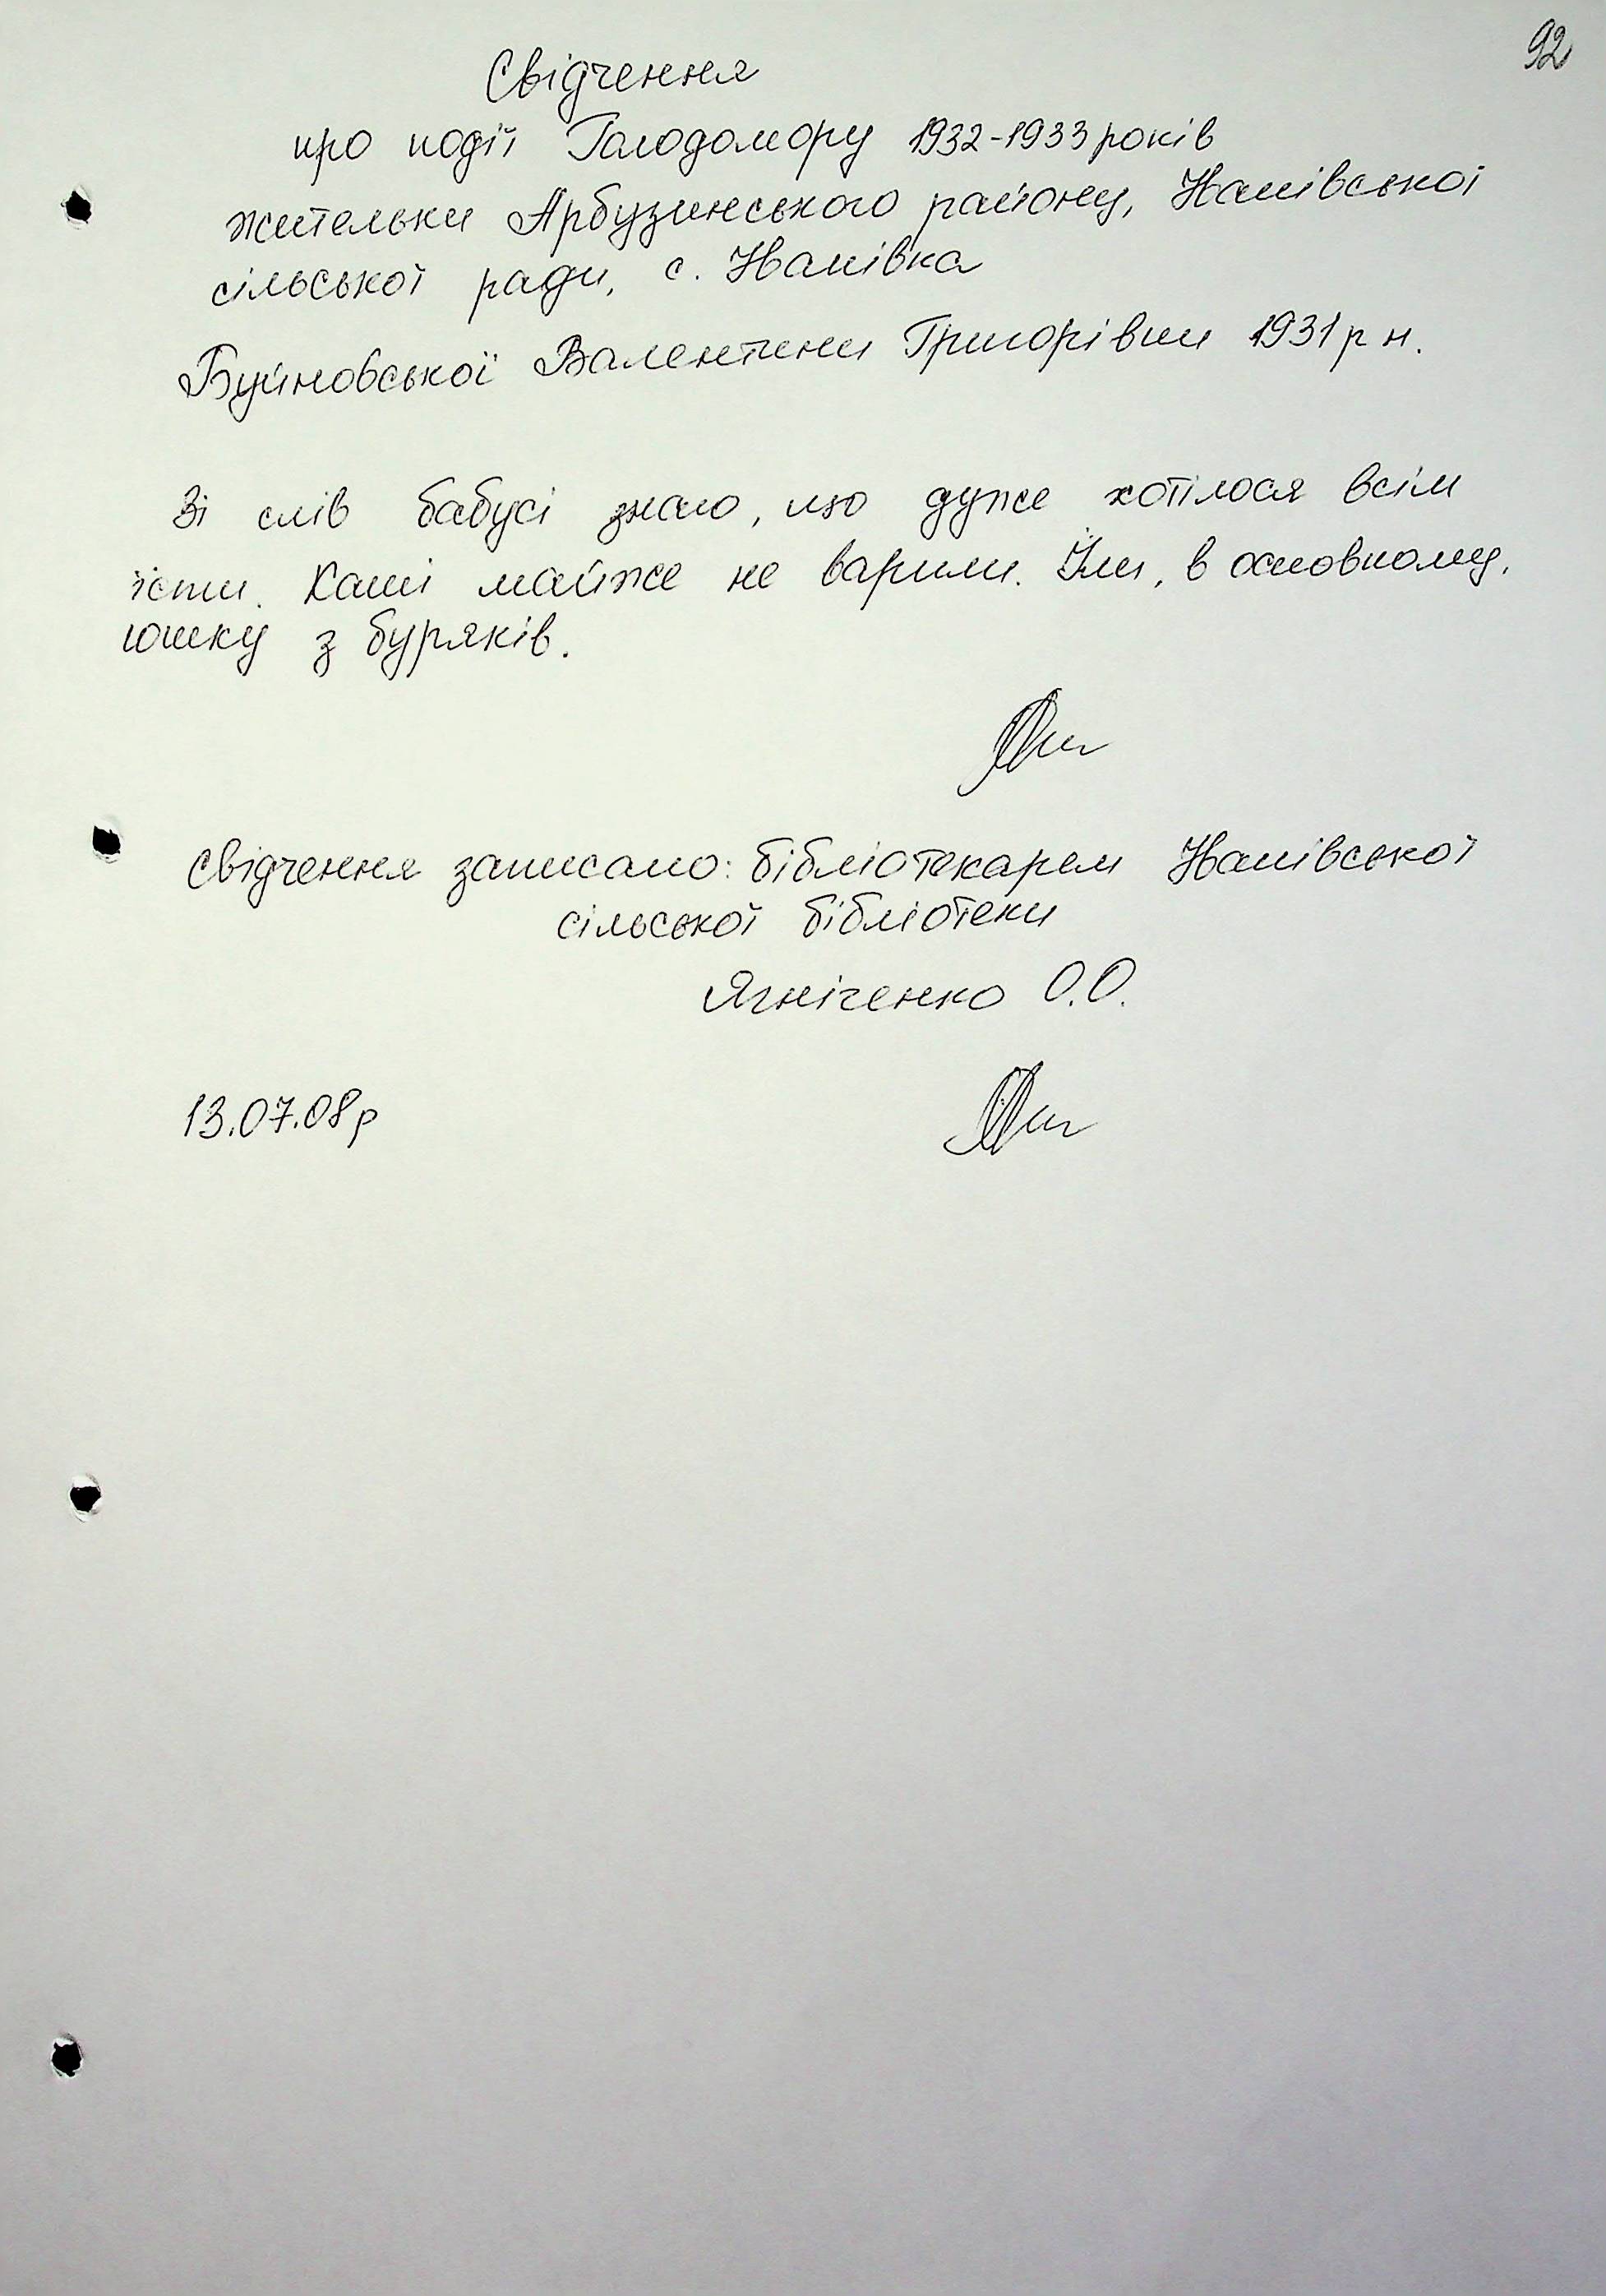 92
Свідчення
про події Голодомору 1932-1933 років
жительки Арбузинського району, Іванівської
сільської ради, с. Іванівка
Буйновської Валентини Григорівни 1931 р н.
Зі слів бабусі знаю, що дуже хотілося всім
їсти. Каші майже не варили. Їли, в основному,
юшку з буряків.
Свідчення записано: бібліотекарем Іванівської
сільської бібліотеки
Ягніченко О.О.
13.07.08р